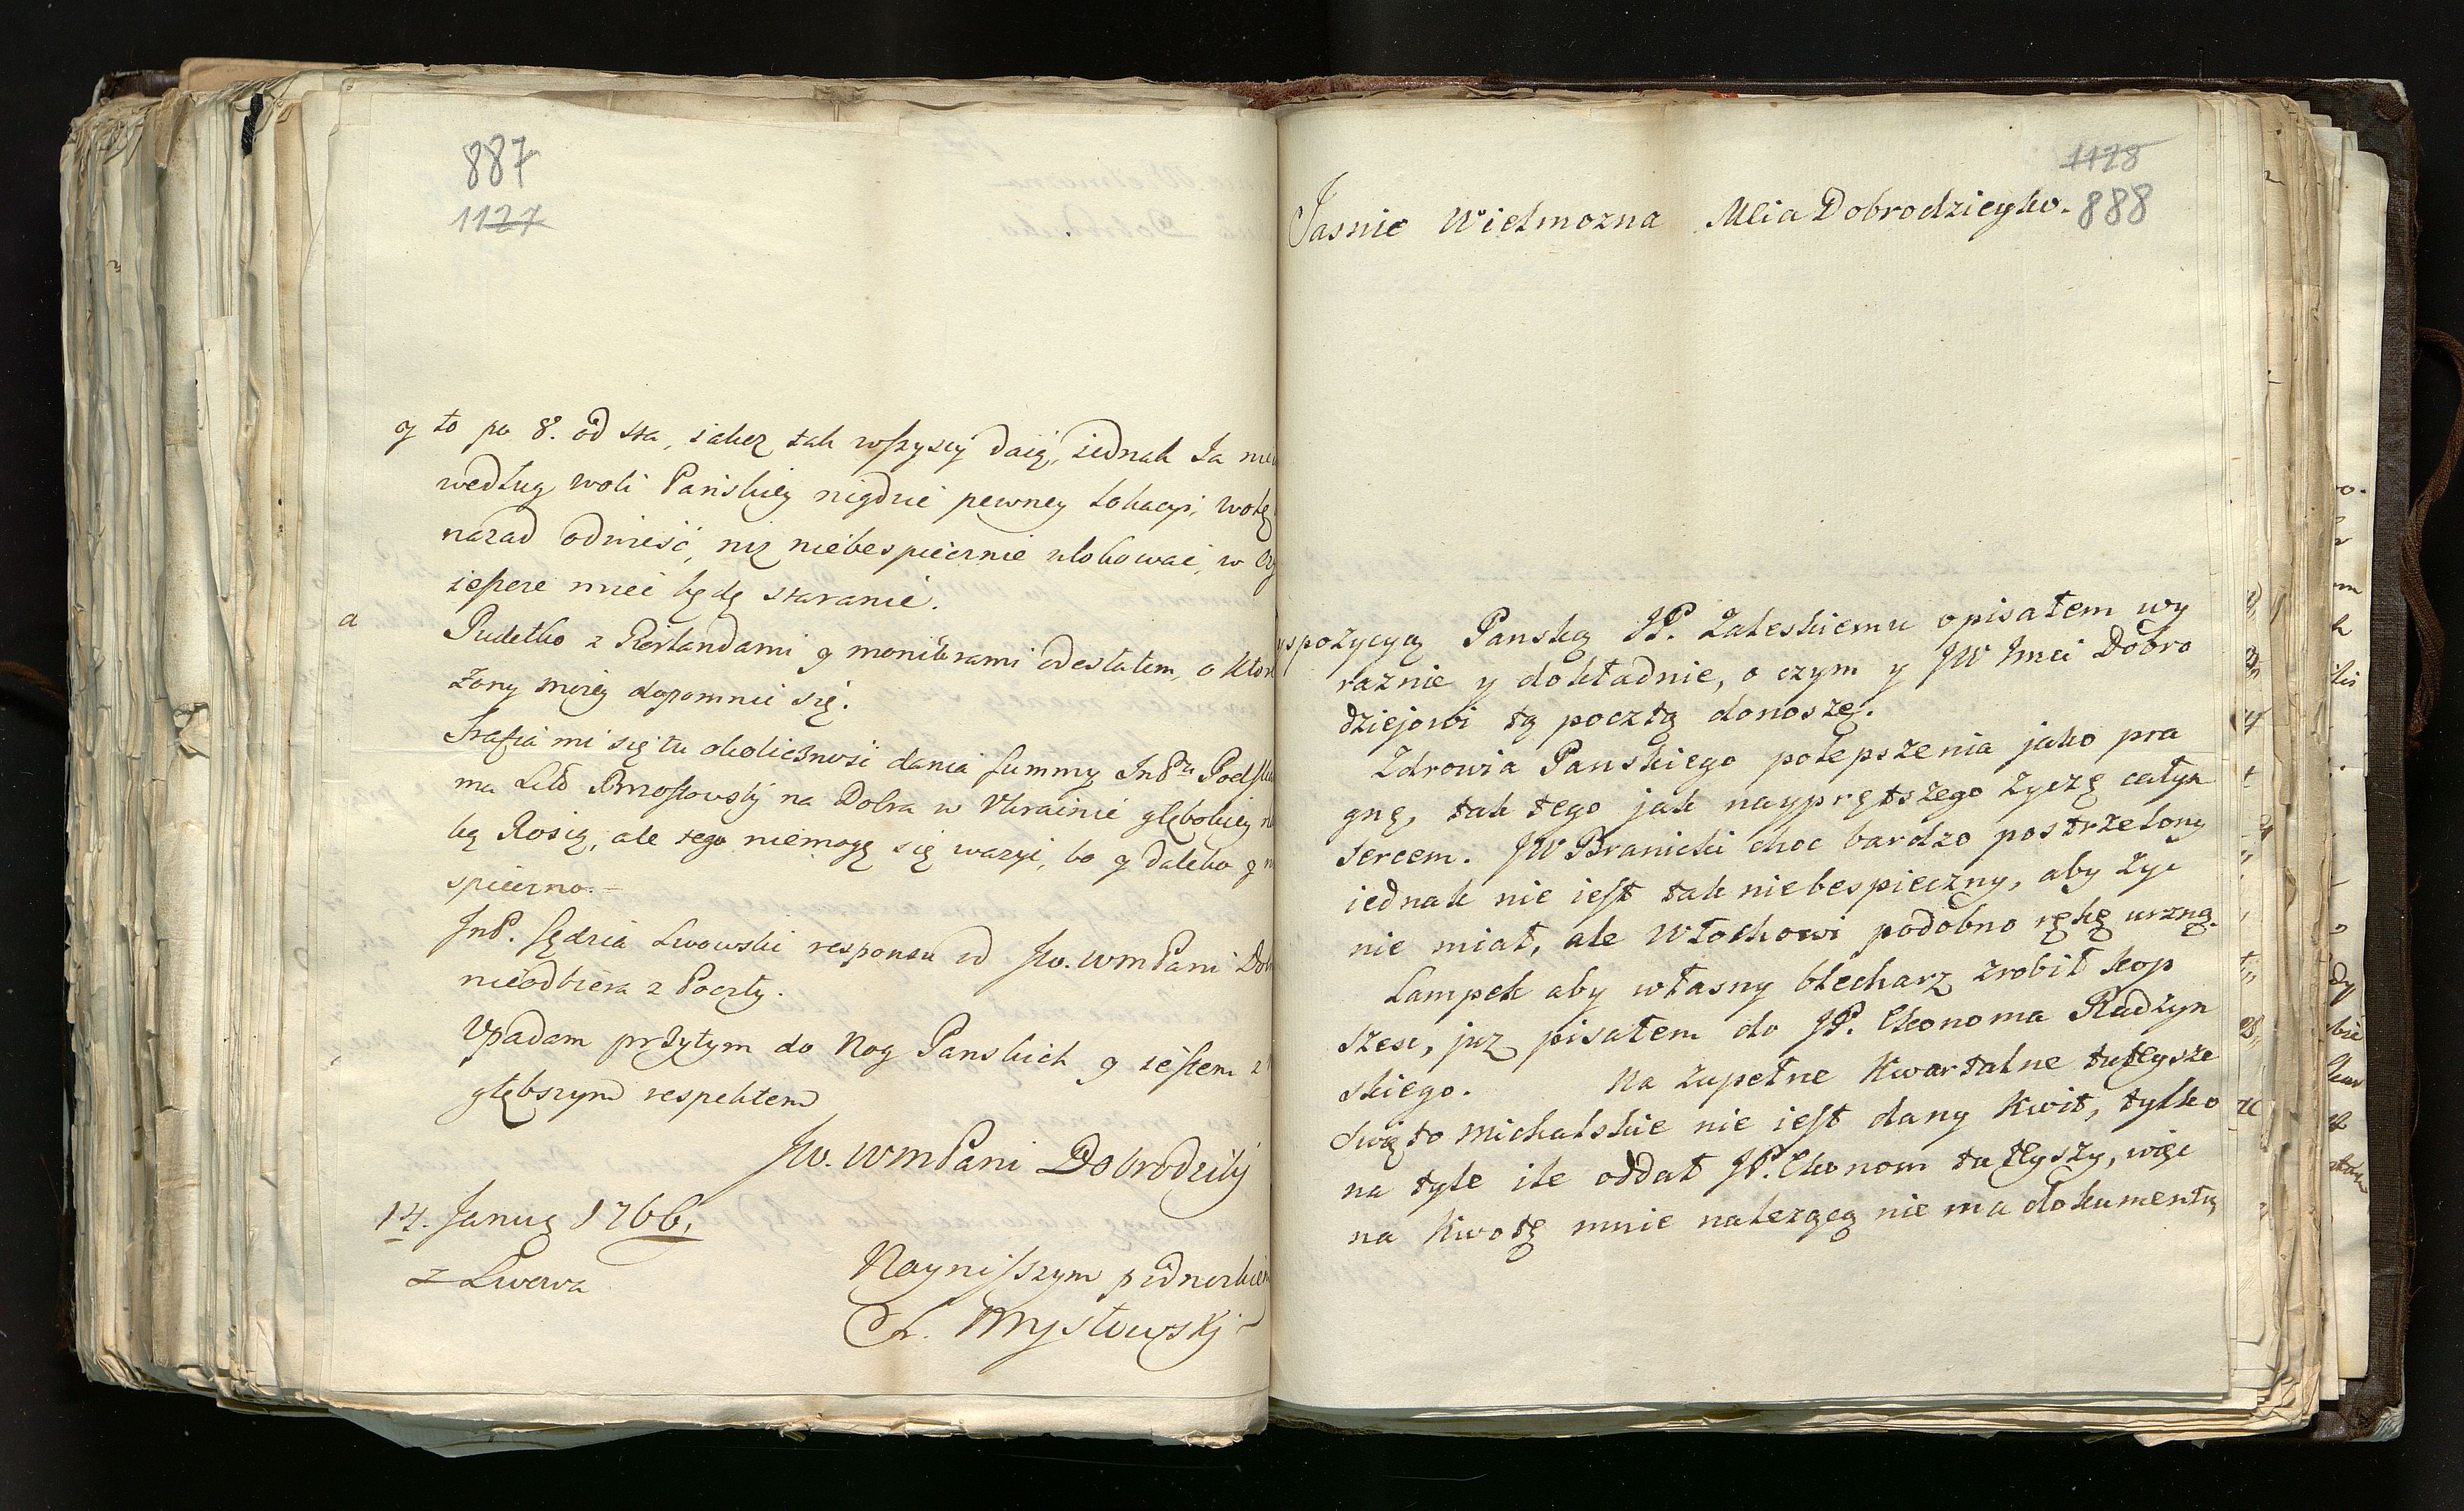 887
1127
y to po 8. od sta, iakez tak wszyscy daią, iednak Ia
według woli Pańskiey nigdzie pewney lokacyi, wolę
nazad odnieść, niz niebespiecznie ulokować, w
iescze mieć będę staranie.
a
Pudełko z Reslandami y monitorami odesłałem, o
Zony moiey dopomnić się.
Trafia mi się tu okoliczność dania summy
na Dobra w Ukrainie głębokiey
Rosią, ale tego niemogę się wazyć, bo y daleko y
spieczno.
JmP. Sędzia Lwowski responsu od Jw. WmPani
nieodbiera z Poczty.
Upadam przytym do Nog Panskich y iestem z
głębszym respektem
Jw. WmPani Dobrodziki
14. Janua 1766.
z Lwowa
Nayniszszym podnozkiem
Mysłowskj
1128
888
Jasnie Wielmozna Mcia Dobrodzieyko.
yspozycyą Panską JP. Zaleskiemu opisałem wy
raznie y dokładnie, o czym y JW Imci Dobro
dziejowi tą pocztą donoszę.
Zdrowia Panskiego polepszenia jako pra
gnę, tak tego jak nayprętszego zyczę całym
sercem. JW Branicki choc bardzo postrzelony
iednak nie iest tak niebespieczny, aby zyc
nie miał, ale Włochowi podobno rękę urzną.
Lampek aby własny blecharz zrobił kop
szesc, juz pisałem do JP. Ekonoma Radzyn
skiego. Na zupełne Kwartalne tuteysze
Swięto Michalskie nie iest dany Kwit, tylko
na tyle ile oddał JP. Ekonom tuteyszy, więc
na Kwotę mnie nalezącą nie ma dokumentu